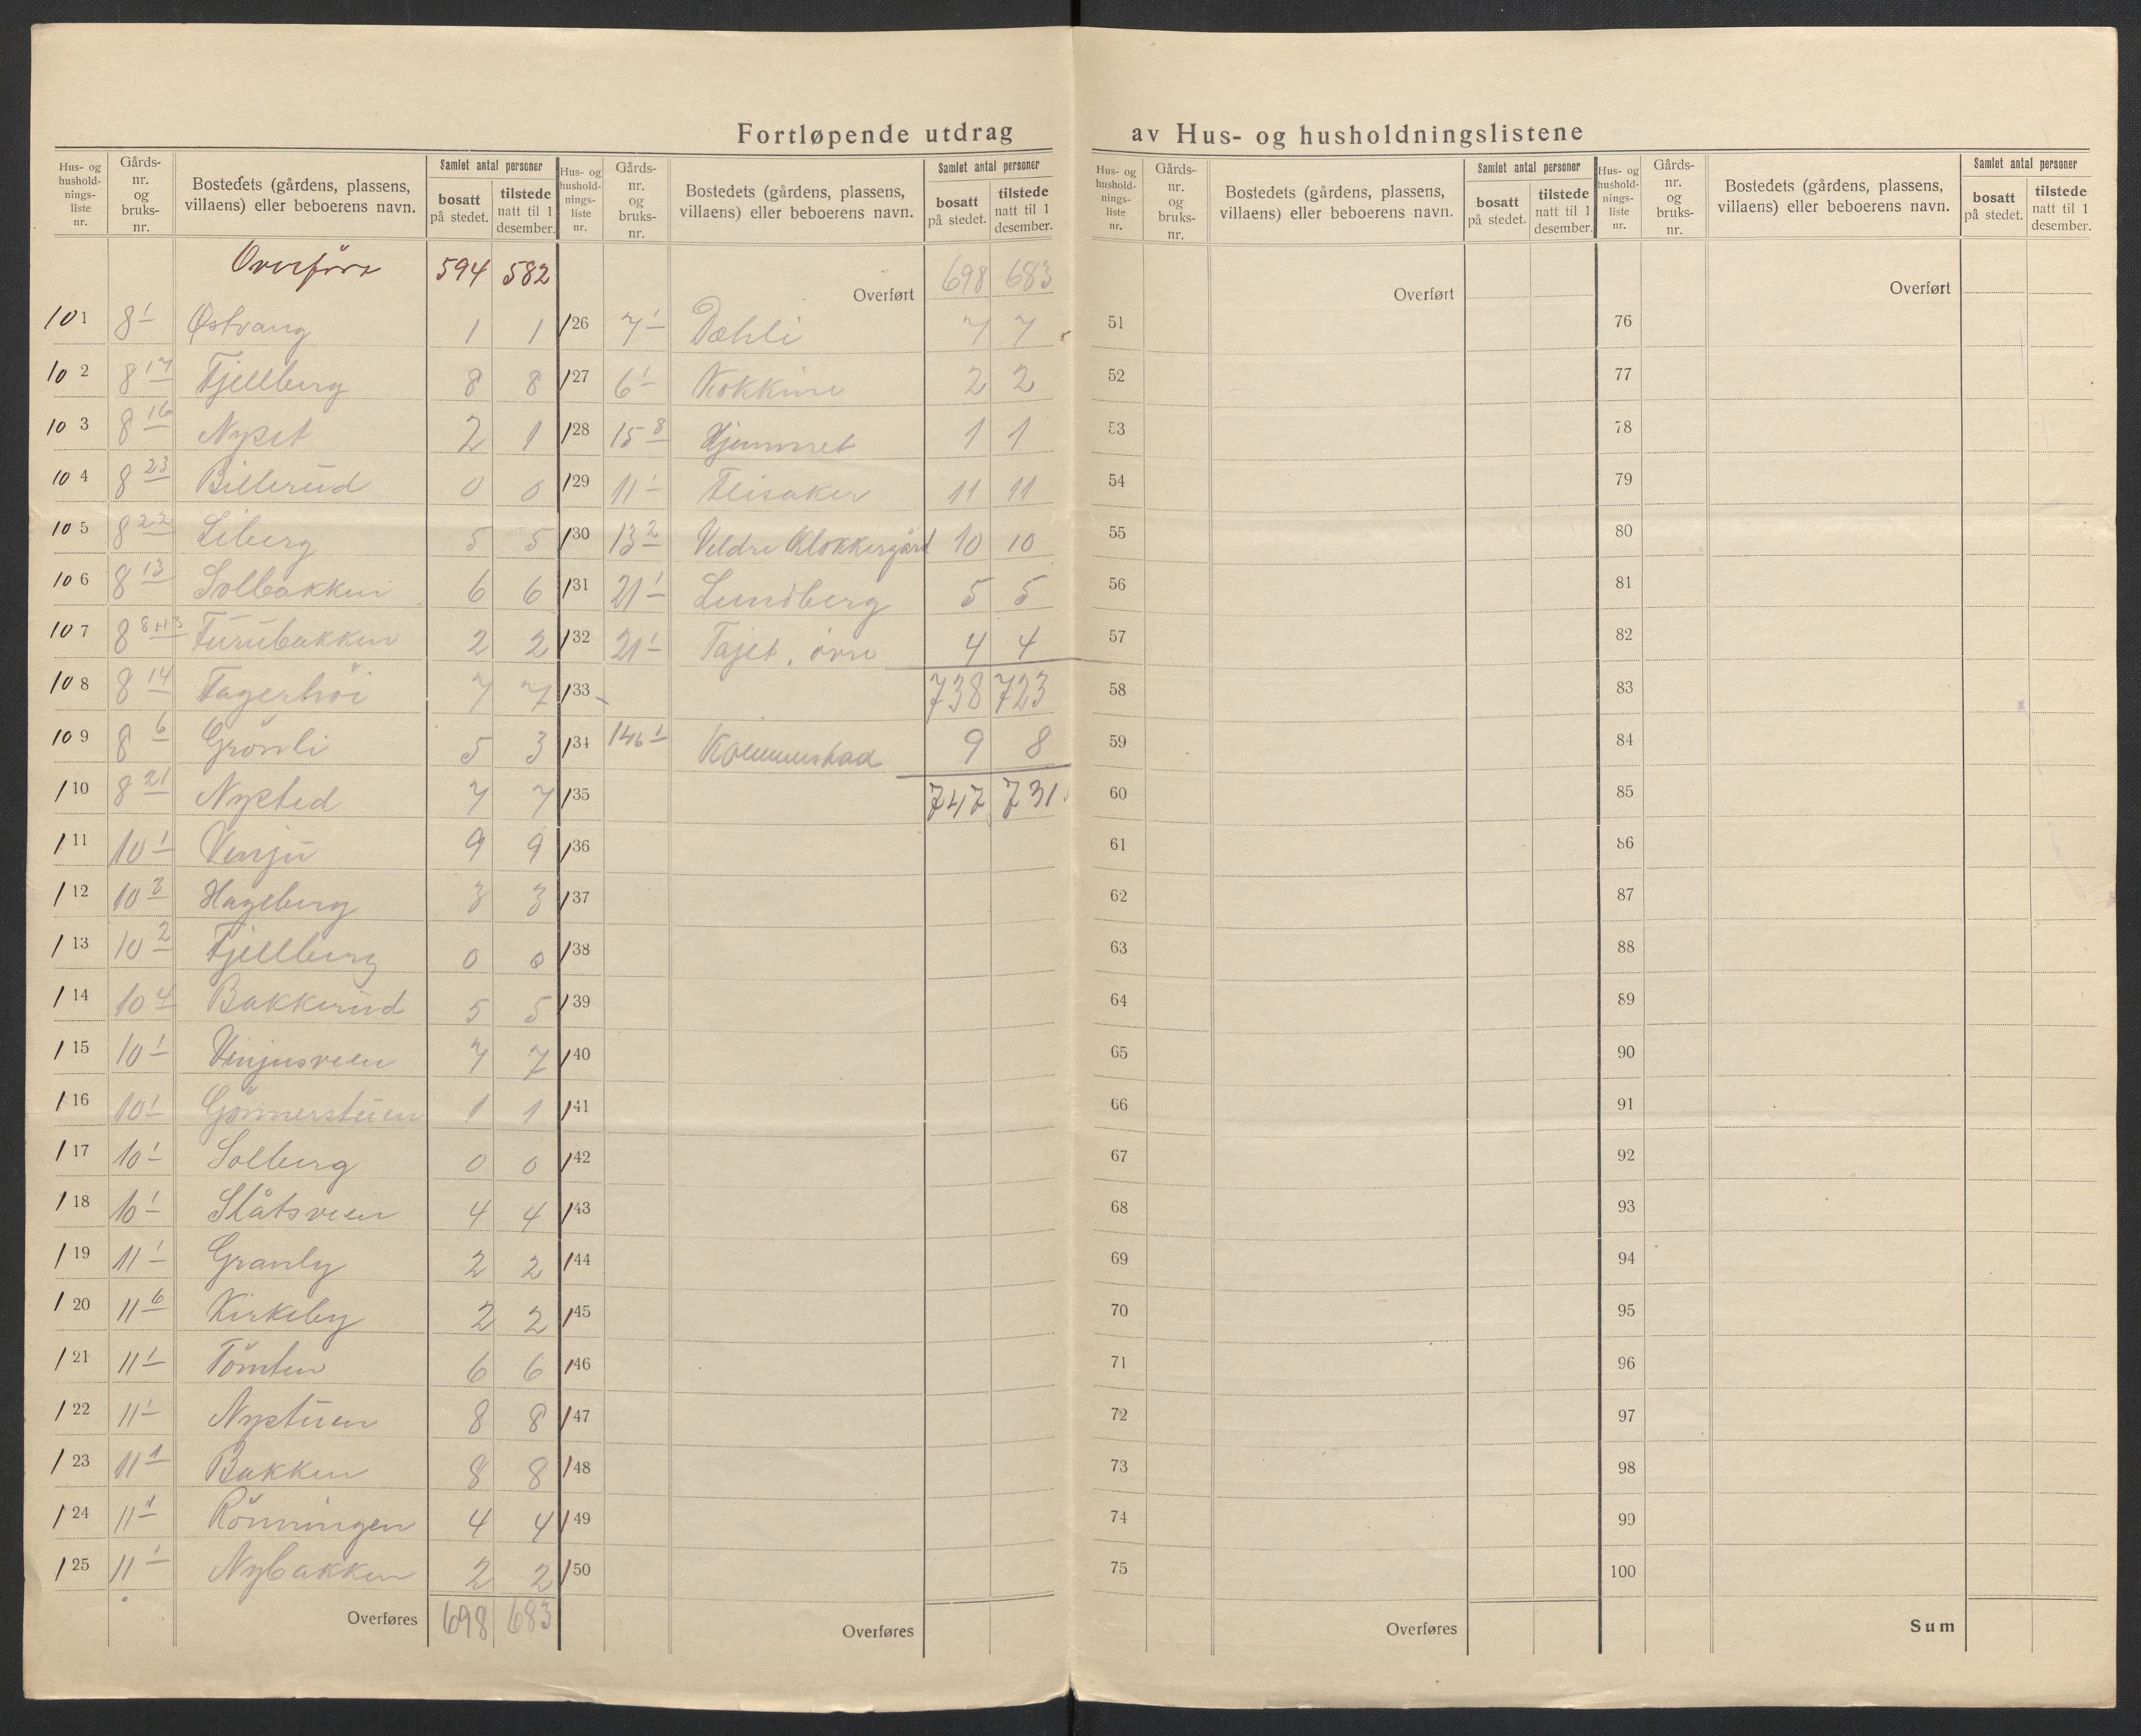 Fortløpende utdrag av Hus- og husholdningslistene
Hus- og husholdnings-liste nr. | Gårds-nr. og bruks-nr. | Bostedets (gårdens, plassens, villaens) eller beboerens navn. | Samlet antal personer bosatt på stedet. | tilstede natt til 1 desember.
594 582
101 8 1 Østvang 1 1
102 8 17 Fjellberg 8 8
103 8 16 Nyset 2 1
104 8 23 Billerud 0 0
105 8 22 Liberg 5 5
106 8 13 Solbakken 6 6
107 8 Furubakken 2 2
108 8 14 Fagerhöi 7 7
109 8 6 Grönli 5 3
110 8 21 Nysted 7 7
111 10 1 Vinju 9 9
112 10 3 Hageberg 3 3
113 10 2 Fjellberg 0 0
114 10 4 Bakkerud 5 5
115 10 1 Vinjusveen 7 7
116 10 1 Gönnerstuen 1 1
117 10 1 Solberg 0 0
118 10 1 Slåtsveen 4 4
119 11 1 Granly 2 2
120 11 6 Kirkeby 2 2
121 11 1 Tömten 6 6
122 11 1 Nystuen 8 8
123 11 1 Bakken 8 8
124 11 1 Rönningen 4 4
125 11 1 Nybakken 2 2
Overføres 698 683
Hus- og husholdnings-liste nr. | Gårds-nr. og bruks-nr. | Bostedets (gårdens, plassens, villaens) eller beboerens navn. | Samlet antal personer bosatt på stedet. | tilstede natt til 1 desember.
Overført 698 683
126 7 1 Dæhli 7 7
127 6 1 2 2
128 15 8 Hjemmet 1 1
129 11 1 Flisaker 11 11
130 13 2 Veldre Klokkergård 10 10
131 21 1 Lundberg 5 5
132 21 1 Tajet, övre 4 4
133 738 723
134 146 1 9 8
135 747 731
136
137
138
139
140
141
142
143
144
145
146
147
148
149
150
Overføres
Hus- og husholdnings-liste nr. | Gårds-nr. og bruks-nr. | Bostedets (gårdens, plassens, villaens) eller beboerens navn. | Samlet antal personer bosatt på stedet. | tilstede natt til 1 desember.
Overført
51
52
53
54
55
56
57
58
59
60
61
62
63
64
65
66
67
68
69
70
71
72
73
74
75
Overføres
Hus- og husholdnings-liste nr. | Gårds-nr. og bruks-nr. | Bostedets (gårdens, plassens, villaens) eller beboerens navn. | Samlet antal personer bosatt på stedet. | tilstede natt til 1 desember.
Overført
76
77
78
79
80
81
82
83
84
85
86
87
88
89
90
91
92
93
94
95
96
97
98
99
100
Sum